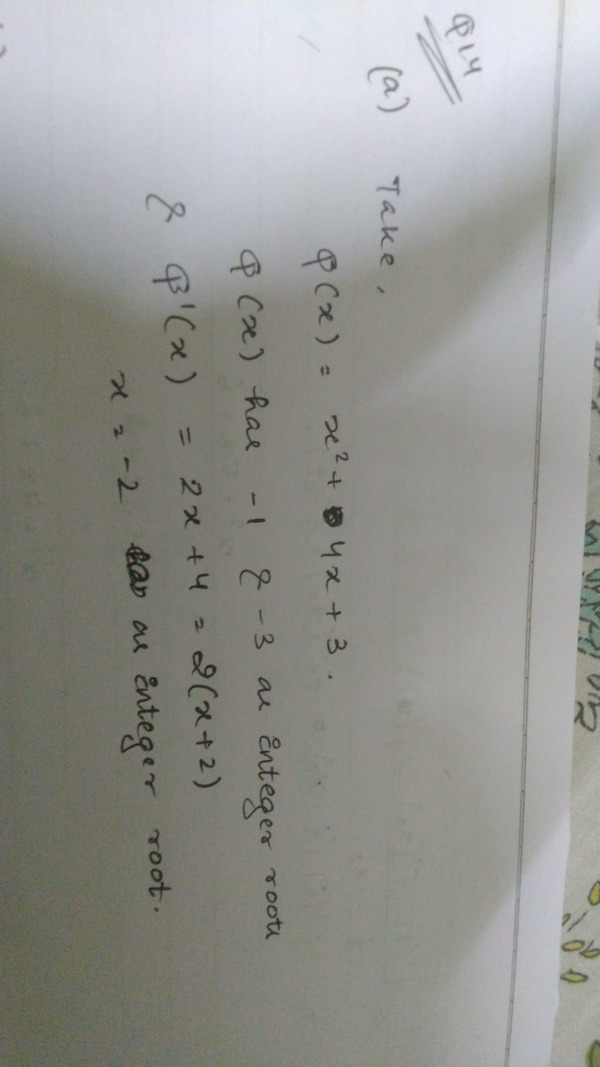 Q14
(a) Take,
P(x) = x² + 4x + 3.
P(x) has -1 & -3 as integer roots
& P'(x) = 2x + 4 = 2(x+2)
x = -2 as integer root.